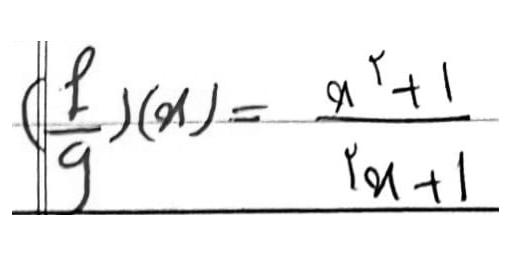 (f/g)(x) = (x^۲ + 1)/(۲x + 1)